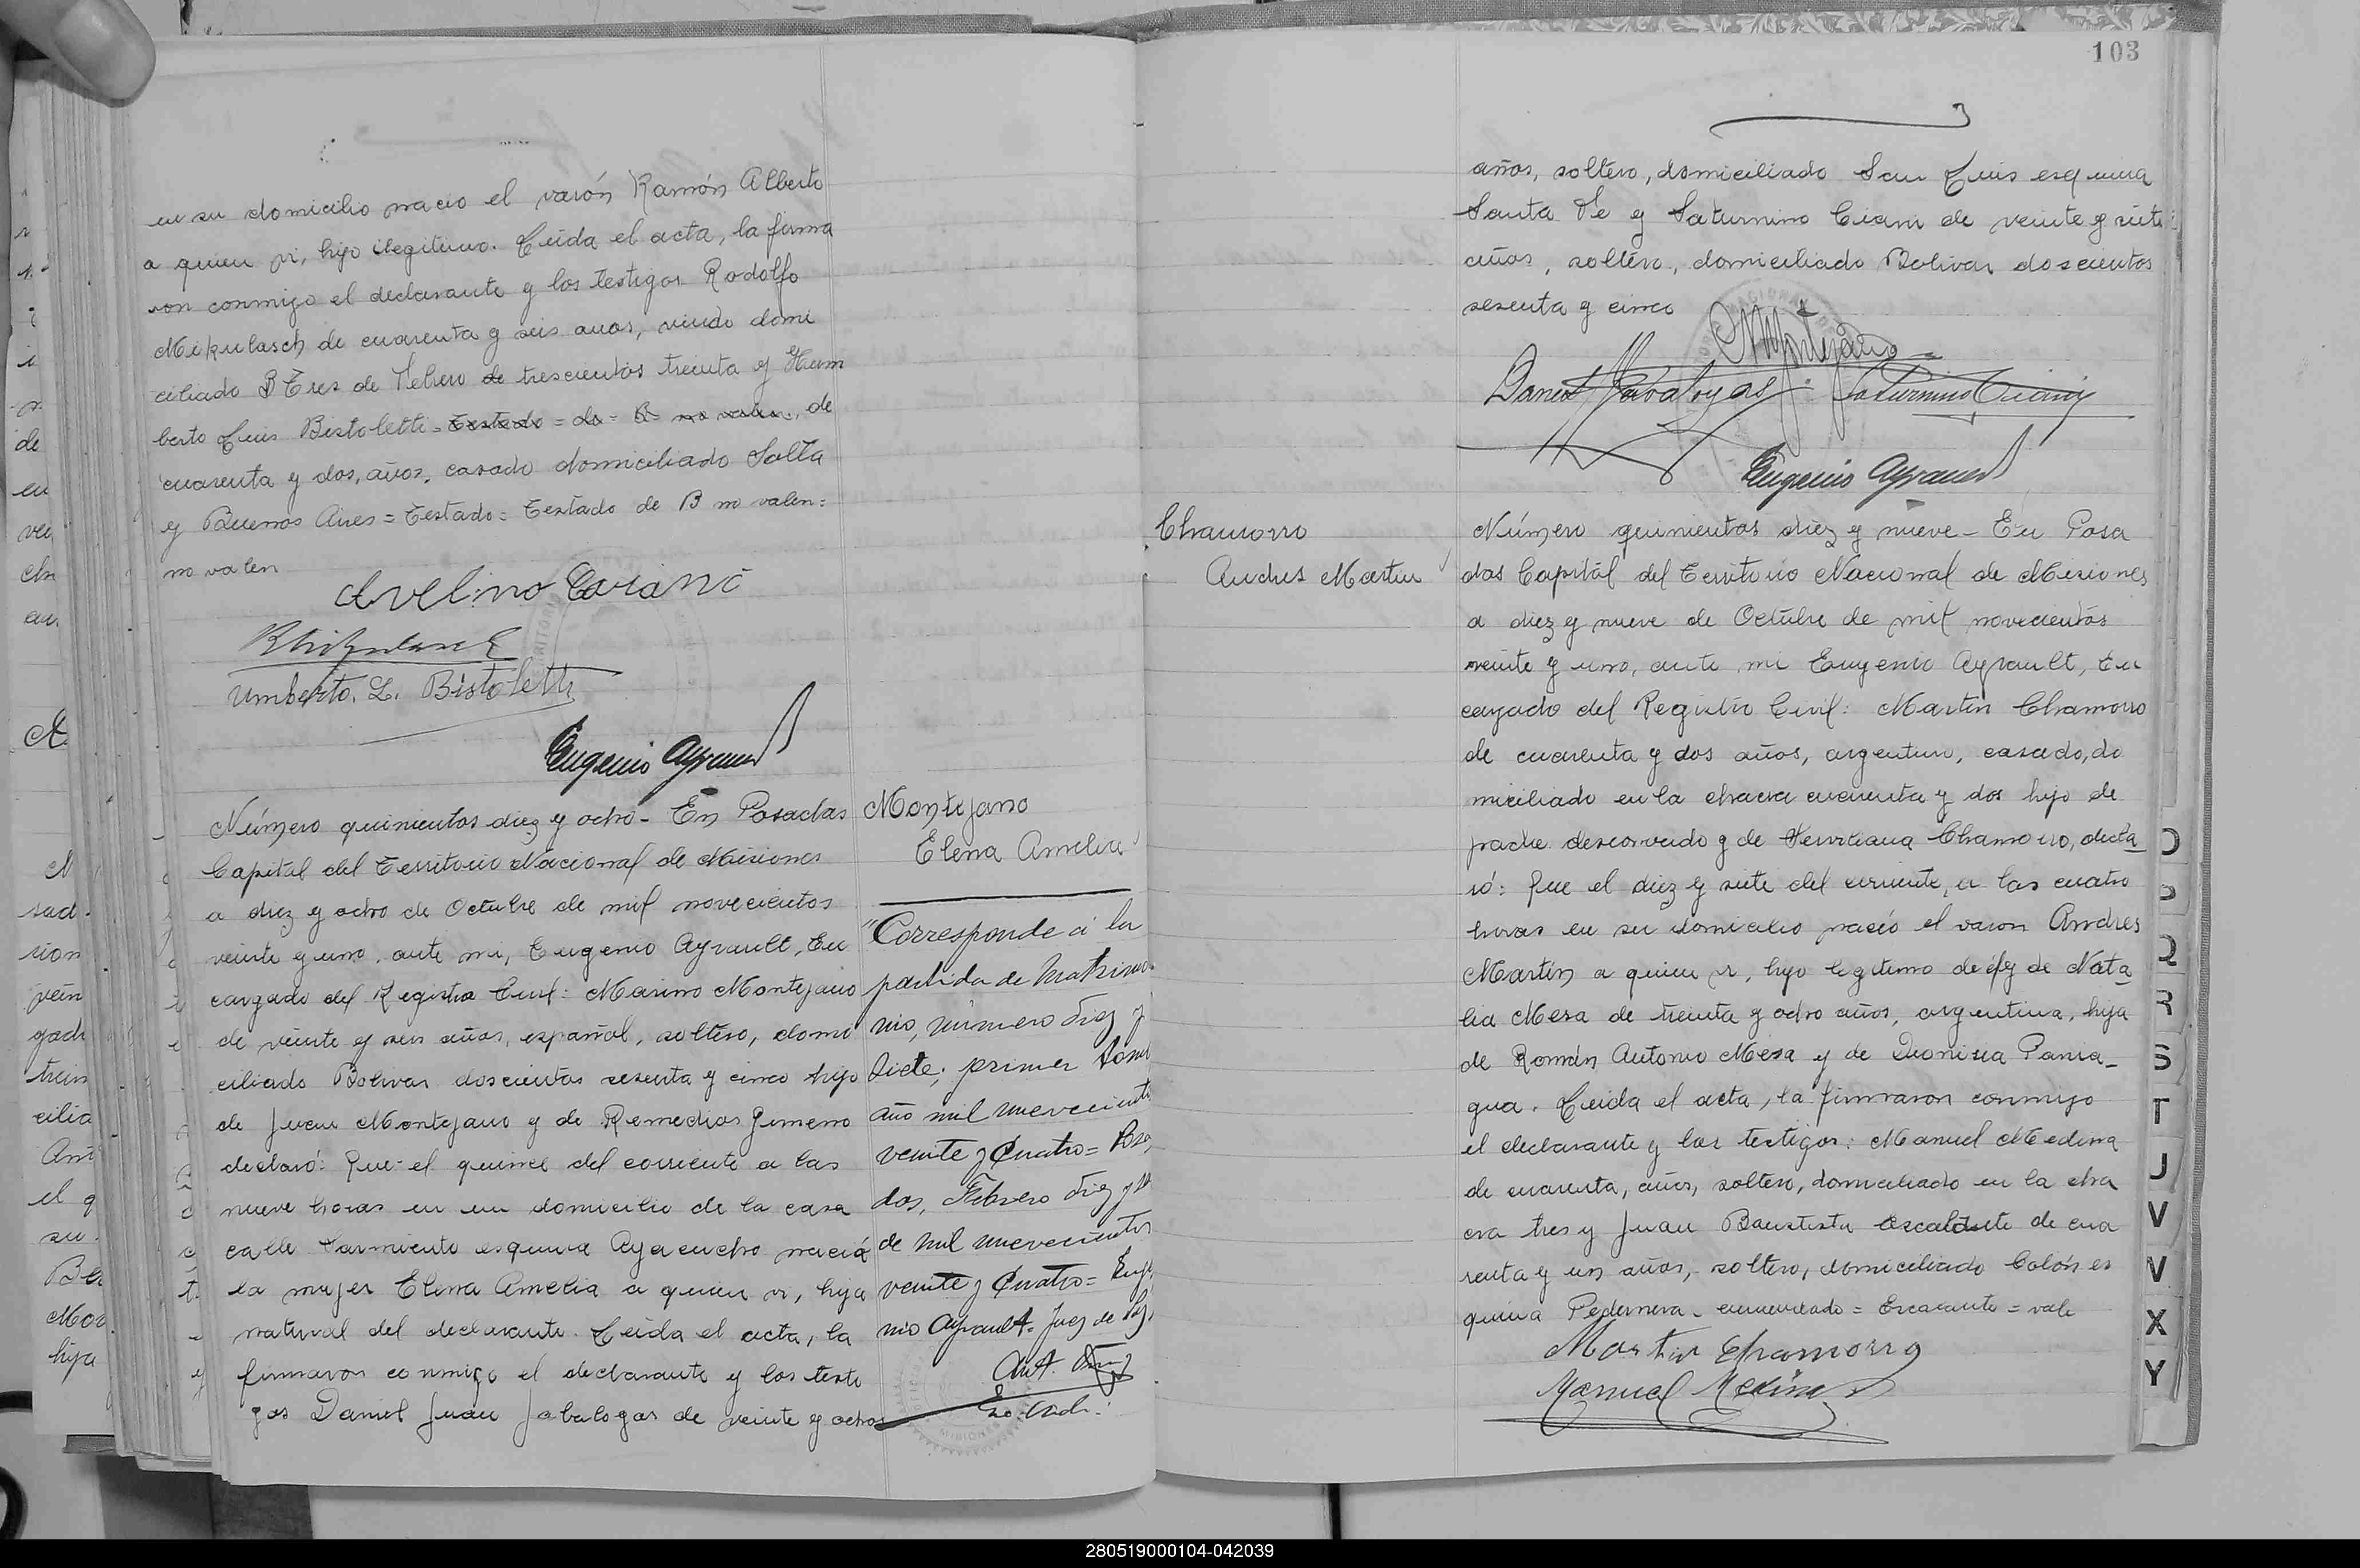 en su domicilio nacio el varón Ramón Alberto
a quien vi, hijo ilegitimo. Leida el acta, la firma
ron conmigo el declarante y los testigos Rodolfo
Mikulasch de cuarenta y seis años, viudo domi
ciliado B Tres de Febrero de trescientos treinta y Hum
berto Luis Bistoletti = Testado = de = B = no valen, de
cuarenta y dos, años, casado domiciliado Salta
y Buenos Aires = Testado = Testado de B no valen =
no valen
Avelino
Umberto. L. Bistoletti
Eugenio Ayrault
Número quinientos diez y ocho - En Posadas
Capital del Territorio Nacional de Misiones
a diez y ocho de Octubre de mil novecientos
veinte y uno, ante mi, Eugenio Ayrault, En
cargado del Registro Civil: Marino Montejano
de veinte y seis años, español, soltero, domi
ciliado Bolivar doscientos sesenta y cinco hijo
de Juan Montejano y de Remedios Jimeno
declaró: Que el quince del corriente a las
nueve horas en su domicilio de la casa
calle Sarmiento esquina Ayacucho nació
la mujer Elena Amelia a quien vi, hija
natural del declarante. Leida el acta, la
firmaron conmigo el declarante y los testi
gos Daniel Juan Jabalogas de veinte y ocho
Montejano
Elena Amelia
"Corresponde á la
partida de Matrimo
nio, número diez y
siete; primer tomo
año mil nuevecientos
veinte y Cuatro = Posa
dos, Febrero diez y
de mil nuevecientos
veinte y Cuatro = Euge
nio Ayrault. Juez de Paz
103
años, soltero, domiciliado San Luis esquina
Santa Fe y Saturnino Ciani de veinte y siete
años, soltero, domiciliado Bolivar doscientos
sesenta y cinco
MMontejano
Daniel Jabalogas
Saturnino Ciani
Eugenio Ayrault
Chamorro
Andres Martin
Número quinientos diez y nueve - En Posa
das Capital del Territorio Nacional de Misiones
a diez y nueve de Octubre de mil novecientos
veinte y uno, ante mi Eugenio Ayrault, En
cargado del Registro Civil: Martin Chamorro
de cuarenta y dos años, argentino, casado, do
miciliado en la chacra cuarenta y dos hijo de
padre desconocido y de Chamorro, decla
ró: Que el diez y siete del corriente, a las cuatro
horas en su domicilio nació el varon Andres
Martin a quien vi, hijo legitimo de él y de Nata
lia Meza de treinta y ocho años, argentina, hija
de Román Antonio Meza y de Dionisia Pania-
gua. Leida el acta, la firmaron conmigo
el declarante y los testigos: Manuel Medina
de cuarenta, años, soltero, domiciliado en la cha
cra tres y Juan Bautista Escalante de cua
renta y un años, soltero, domiciliado Colón es
quina Pedernera - enmendado = Escalante = vale
Martin Chamorro
Manuel Medina
Q
R
S
T
J
V
V
X
Y
280519000104-042039